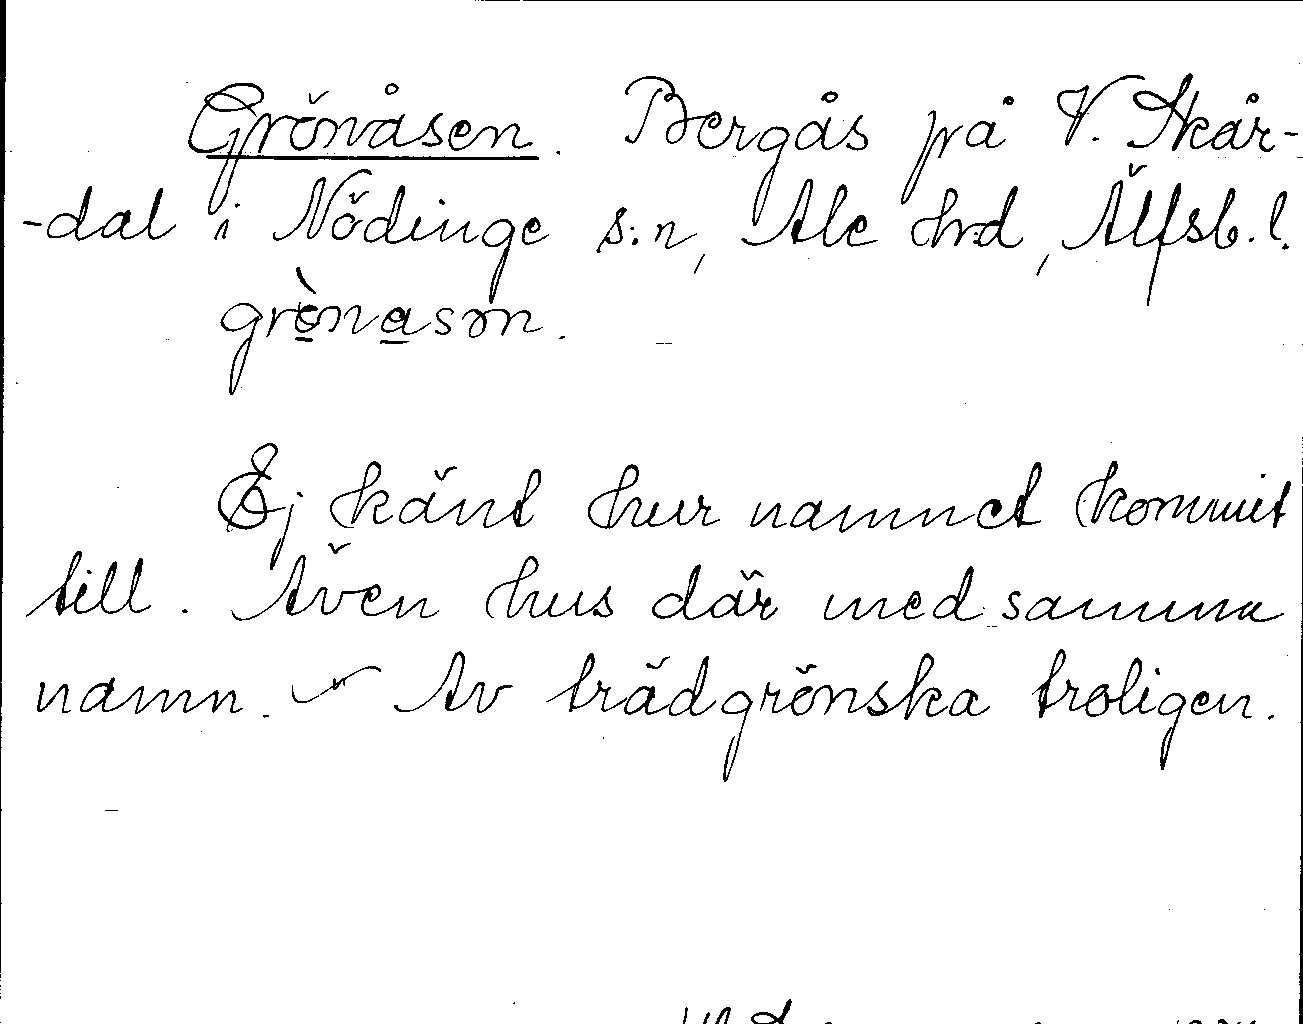 Grönåsen. Bergås på V. Skår-
-dal i Nödinge s:n, Ale hrd, Älfsb. l.
grènasən.
Ej känt hur namnet kommit
till. Även hus där med samma
namn. Av trädgrönska troligen.